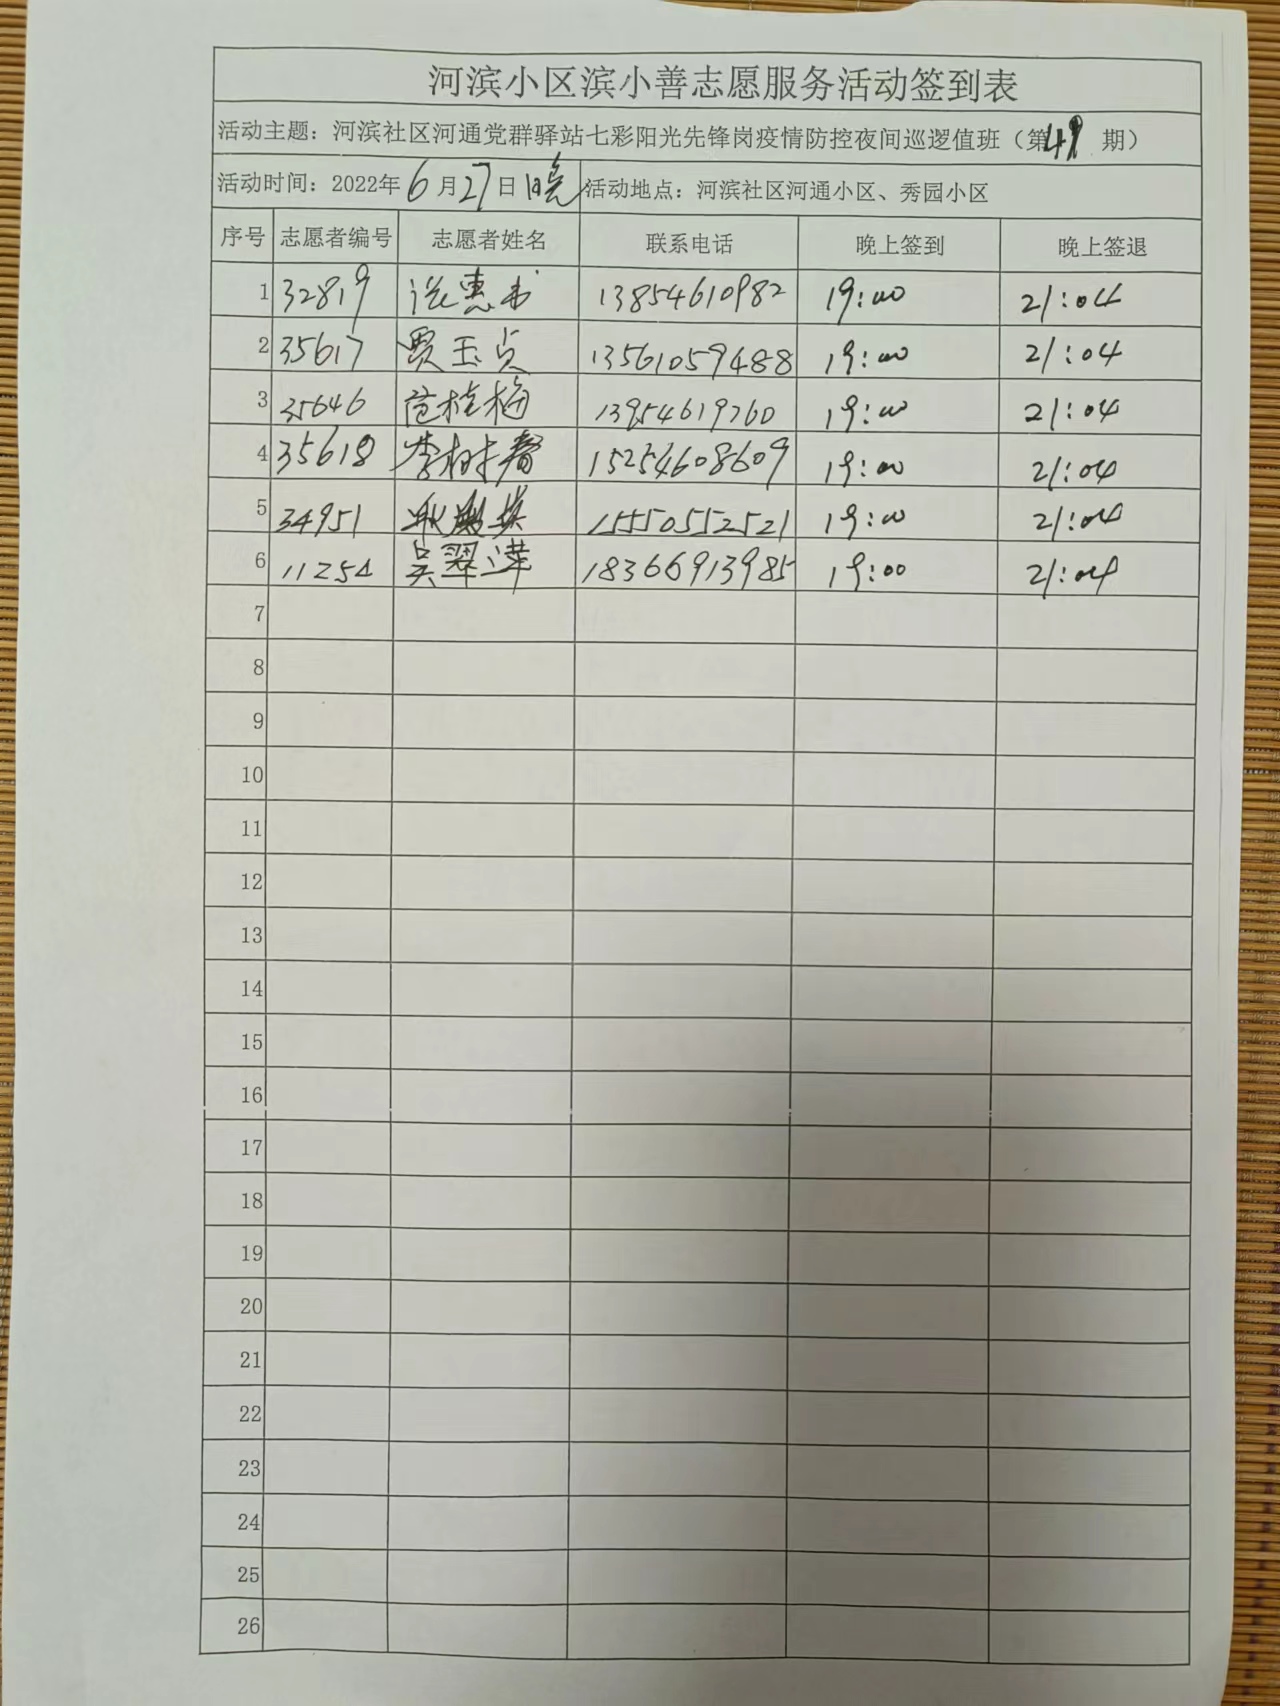 河滨小区滨小善志愿服务活动签到表
活动主题：河滨社区河通党群驿站七彩阳光先锋岗疫情防控夜间巡逻值班（第 期）
活动时间：2022年6月27日晚 活动地点：河滨社区河通小区、秀园小区
序号 志愿者编号 志愿者姓名 联系电话 晚上签到 晚上签退
1 32819 13854610982 19:00 21:04
2 35617 贾玉贞 13561059488 19:00 21:04
3 35646 范桂梅 13954619760 19:00 21:04
4 35618 李树春 15254608609 19:00 21:04
5 34951 15550552521 19:00 21:04
6 11254 吴翠萍 18366913985 19:00 21:04
7
8
9
10
11
12
13
14
15
16
17
18
19
20
21
22
23
24
25
26